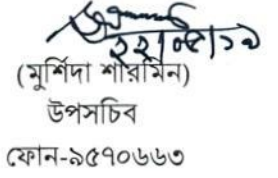 ২২|০৫|১৯
(মুর্শিদা শারমিন)
উপসচিব
ফোন-৯৫৭০৬৬৩